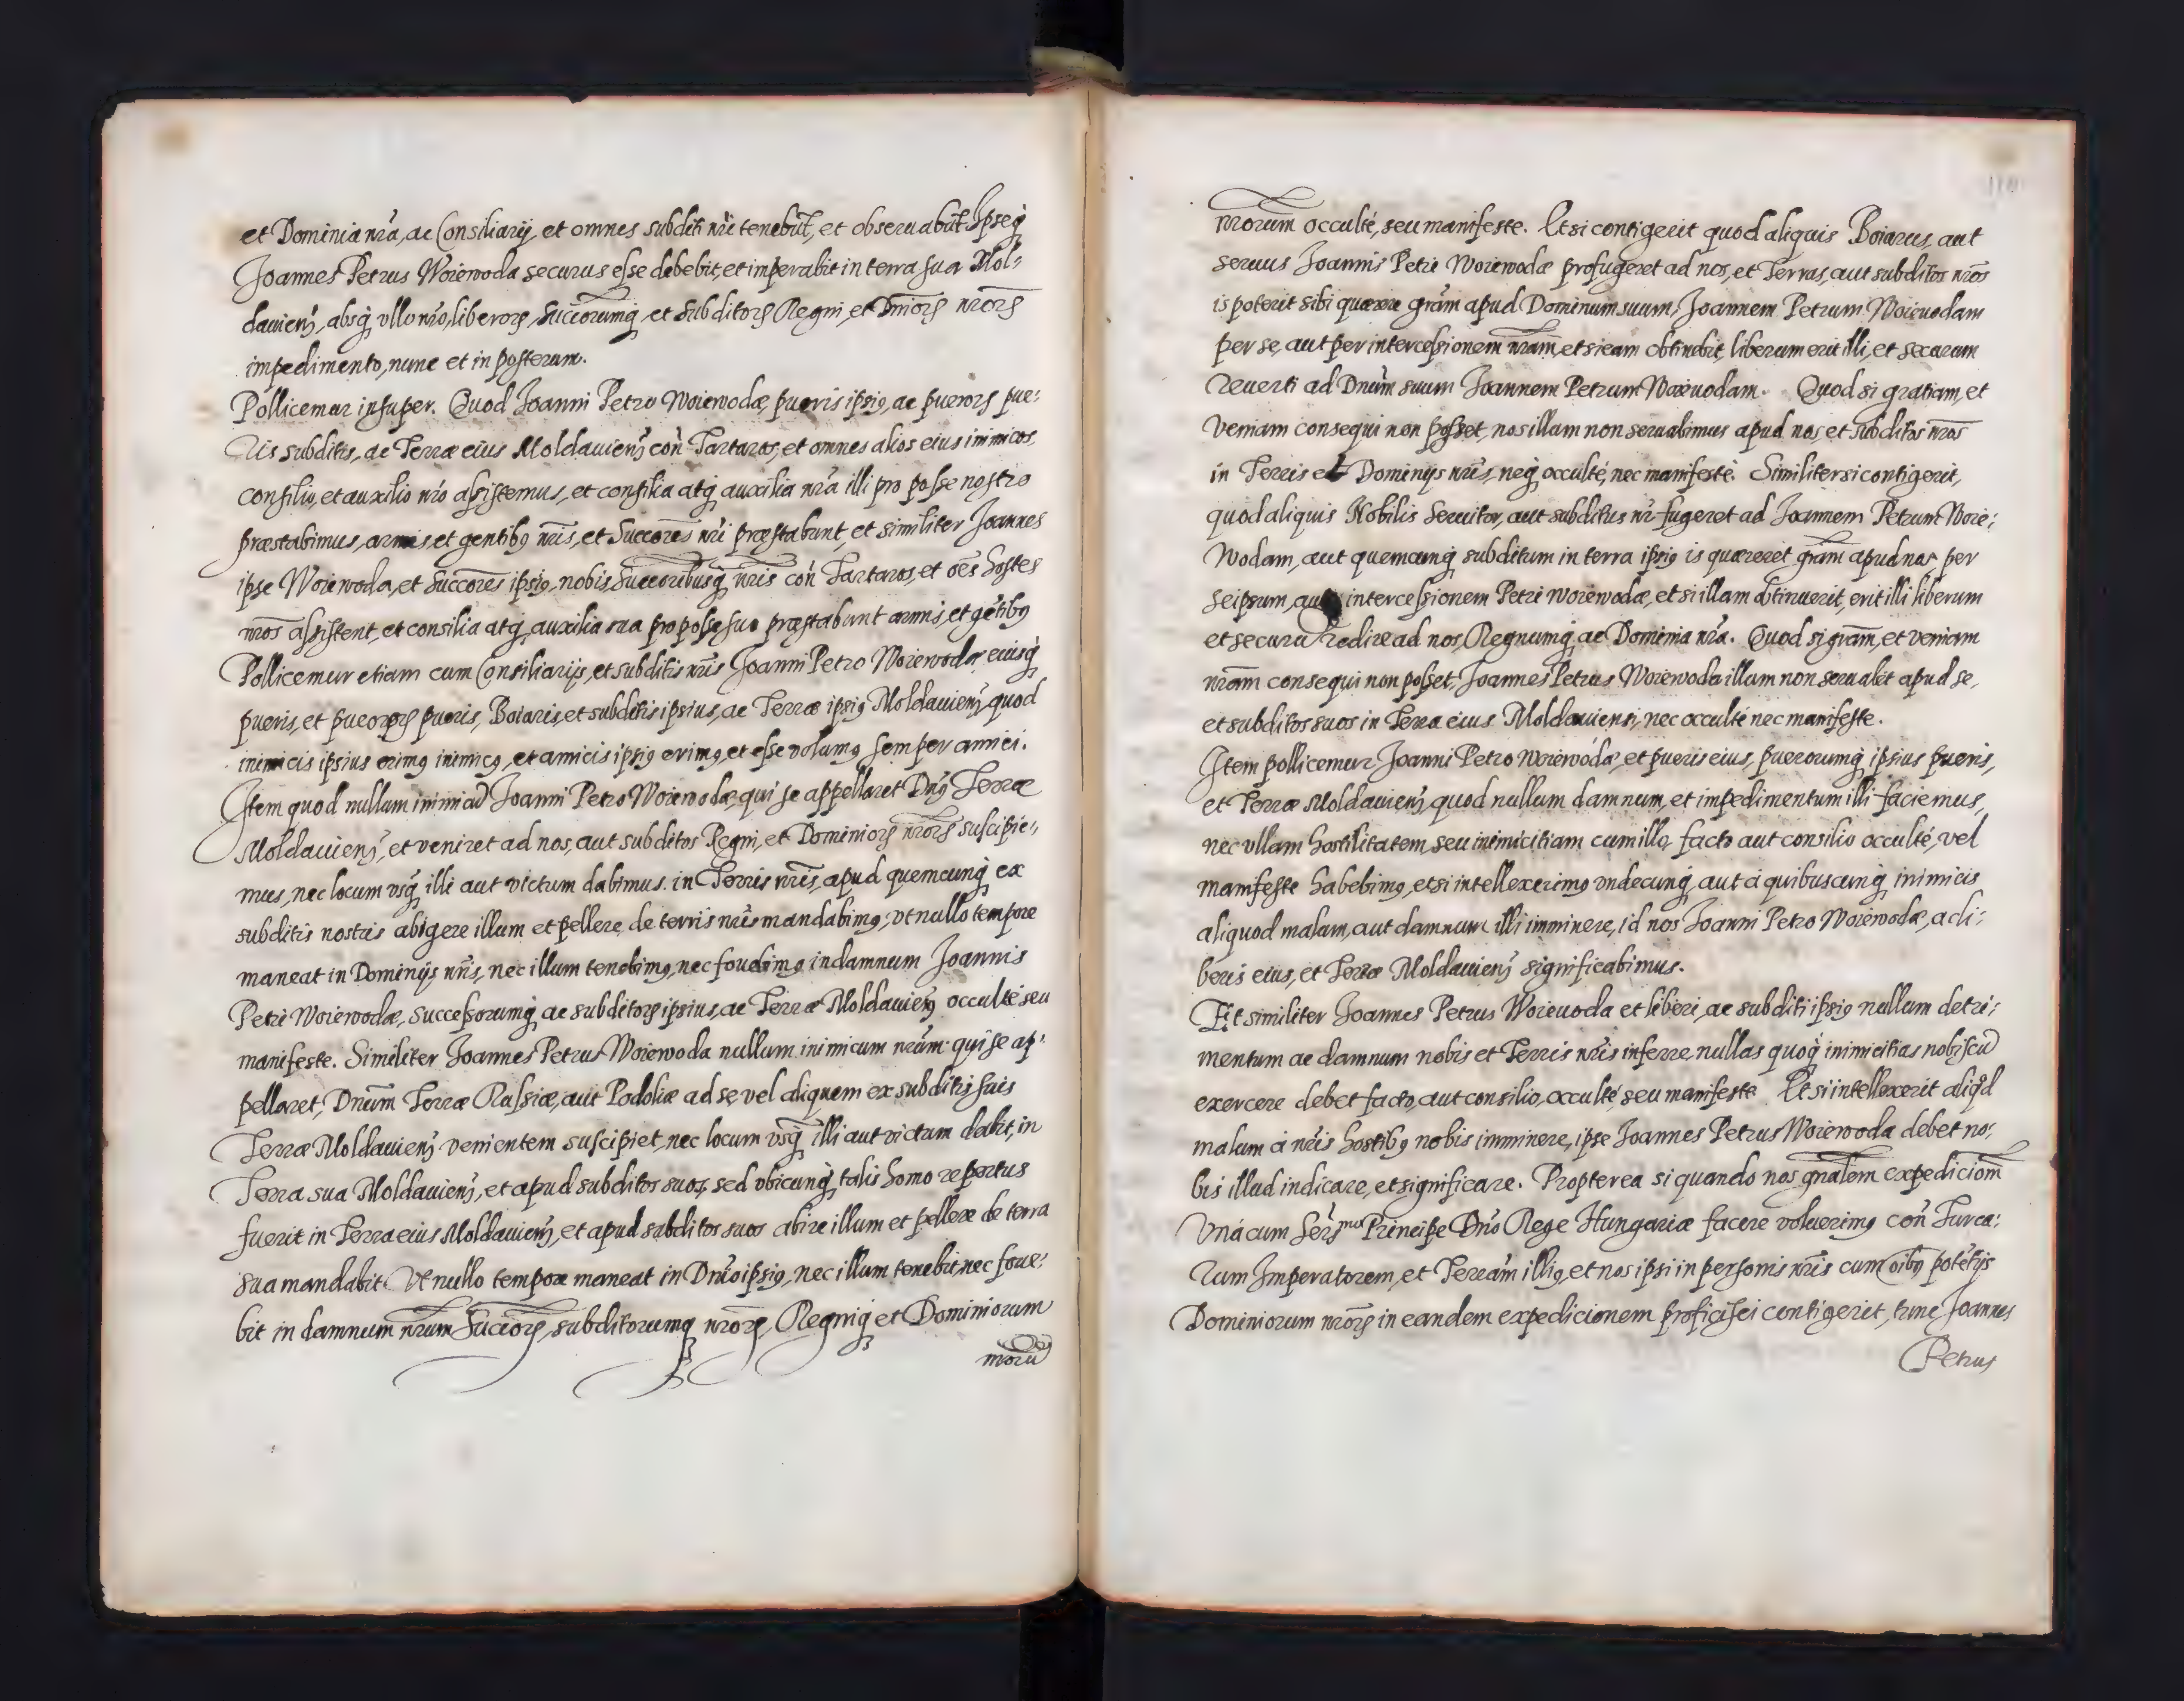 et Dominia nr̃a, ac Consiliarij, et omnes subditi nr̃i tenebũt, et obseruabũt Ipseq̃
Joannes Petrus Woiewoda securus esse debebit, et imperabit in terra sua Mol:
dauieñ, absq̃ vllo nr̃o, liberorꝝ, Successorumq̃ et subditorꝝ Regni, et Dn̄iorꝝ nr̄orꝝ
impedimento, nunc et in posterum.
Pollicemur insuper. Quod Joanni Petro Woiewodæ, pueris ipsiꝰ, ac puerorꝝ pue:
ris subditis, ac Terræ eius Moldauieñ con̄ Tartaros, et omnes alios eius inimicos,
consilio, et auxilio nr̃o assistemus, et consilia atq̃ auxilia nr̃a illi pro posse nostro
præstabimus, armis, et gentibꝰ nr̃is, et Succores nr̃i præstabunt, et similiter Joannes
ipse Woiewoda, et Succores ipsiꝰ, nobis, Successoribusq̃ nr̃is con̄ Tartaros, et oẽs hostes
nr̃os assistent, et consilia atq̃ auxilia sua pro posse suo præstabunt armis, et gẽtibꝰ
Pollicemur etiam cum Consiliarijs, et subditis nr̃is Joanni Petro Woiewodæ, eiusq̃
pueris, et puerorꝝ pueris, Boiaris, et subditis ipsius, ac Terræ ipsiꝰ Moldauieñ, quod
inimicis ipsius erimꝰ inimicꝰ, et amicis ipsiꝰ erimꝰ, et esse volumꝰ semper amici.
Item quod nullum inimicũ Joanni Petro Woiewodæ, qui se appellaret Dn̄ꝰ Terræ
Moldauieñ, et veniret ad nos, aut subditos Regni, et Dominiorꝝ nr̄orꝝ suscipie:
mus, nec locum vsq̃ illi aut victum dabimus in Terris nr̃is, apud quemcunq̃ ex
subditis nostris abigere illum et pellere de terris nr̃is mandabimꝰ, vt nullo tempore
maneat in Dominijs nr̃is, nec illum tenebimꝰ, nec fouebimꝰ in damnum Joannis
Petri Woiewodæ, successorumq̃ ac subditorꝝ ipsius, ac Terræ Moldauieñ occulte seu
manifeste. Similiter Joannes Petrus Woiewoda nullum inimicum nr̃um qui se ap:
pellaret, Dn̄um Terræ Russiæ, aut Podoliæ ad se, vel aliquem ex subditis suis
Terræ Moldauieñ venientem suscipiet, nec locum vsq̃ illi aut victum dabit, in
Terra sua Moldauieñ, et apud subditos suos, sed vbicunq̃ talis homo repertus
fuerit in Terra eius Moldauieñ, et apud subditos suos abire illum et pellere de terra
sua mandabit. Vt nullo tempore maneat in Dn̄io ipsiꝰ, nec illum tenebit, nec foue:
bit in damnum nr̃um Succorꝝ, subditorumq̃ nr̄orꝝ, Regniq̃ et Dominiorum
nr̄orũ
nr̃orum occulte, seu manifeste. Et si contigerit quod aliquis Boiarus, aut
seruus Joannis Petri Woiewodæ profugeret ad nos, et Terras, aut subditos nr̃os
is poterit sibi quærere gr̃am apud Dominum suum, Joannem Petrum Woieuodam
per se, aut per intercessionem nr̃am, et si eam obtinebit, liberum erit illi, et securum
reuerti ad Dn̄um suum Joannem Petrum Woieuodam. Quod si gratiam, et
veniam consequi non posset, nos illum non seruabimus apud nos, et subditos nr̃os
in Terris et Dominijs nr̃is, neq̃ occulte, nec manifeste. Similiter si contigerit,
quod aliquis Nobilis Seruitor, aut subditus nr̃ fugeret ad Joannem Petrum Woie:
wodam, aut quemcunq̃ subditum in terra ipsiꝰ is quæreret gr̃am apud nos per
seipsum, aut intercessionem Petri Woiewodæ, et si illam obtinuerit, erit illi liberum
et securũ redire ad nos, Regnumq̃ ac Dominia nr̃a. Quod si gr̃am, et veniam
nr̃am consequi non posset, Joannes Petrus Woiewoda illum non seruabit apud se,
et subditos suos in Terra eius Moldauiensi, nec occulte nec manifeste.
Item pollicemur Joanni Petro Woiewodæ, et pueris eius, puerorumq̃ ipsius pueris,
et Terræ Moldauieñ, quod nullum damnum, et impedimentum illi faciemus,
nec vllam hostilitatem, seu inimicitiam cum illo, facto aut consilio occulte, vel
manifeste habebimꝰ, et si intellexerimꝰ vndecunq̃, aut à quibuscunq̃ inimicis
aliquod malum, aut damnum illi imminere, id nos Joanni Petro Woiewodæ, ac li:
beris eius, et Terræ Moldauieñ significabimus.
Et similiter Joannes Petrus Woieuoda et liberi, ac subditi ipsiꝰ nullum detri:
mentum ac damnum nobis et Terris nr̃is inferre, nullas quoq̃ inimicitias nobiscũ
exercere debet facto, aut consilio, occulte, seu manifeste. Et si intellexerit aliqd
malum à nr̃is hostibꝰ nobis imminere, ipse Joannes Petrus Woiewoda debet no:
bis illud indicare, et significare. Propterea si quando nos gn̄alem expedicionẽ
Vnà cum Serᵐᵒ Principe Dn̄o Rege Hungariæ facere voluerimꝰ con̄ Turca:
rum Imperatorem, et Terram illiꝰ, et nos ipsi in personis nr̃is cum oĩbꝰ potẽtijs
Dominiorum nr̄orꝝ in eandem expedicionem proficisci contigerit, tunc Joannes
Petrus